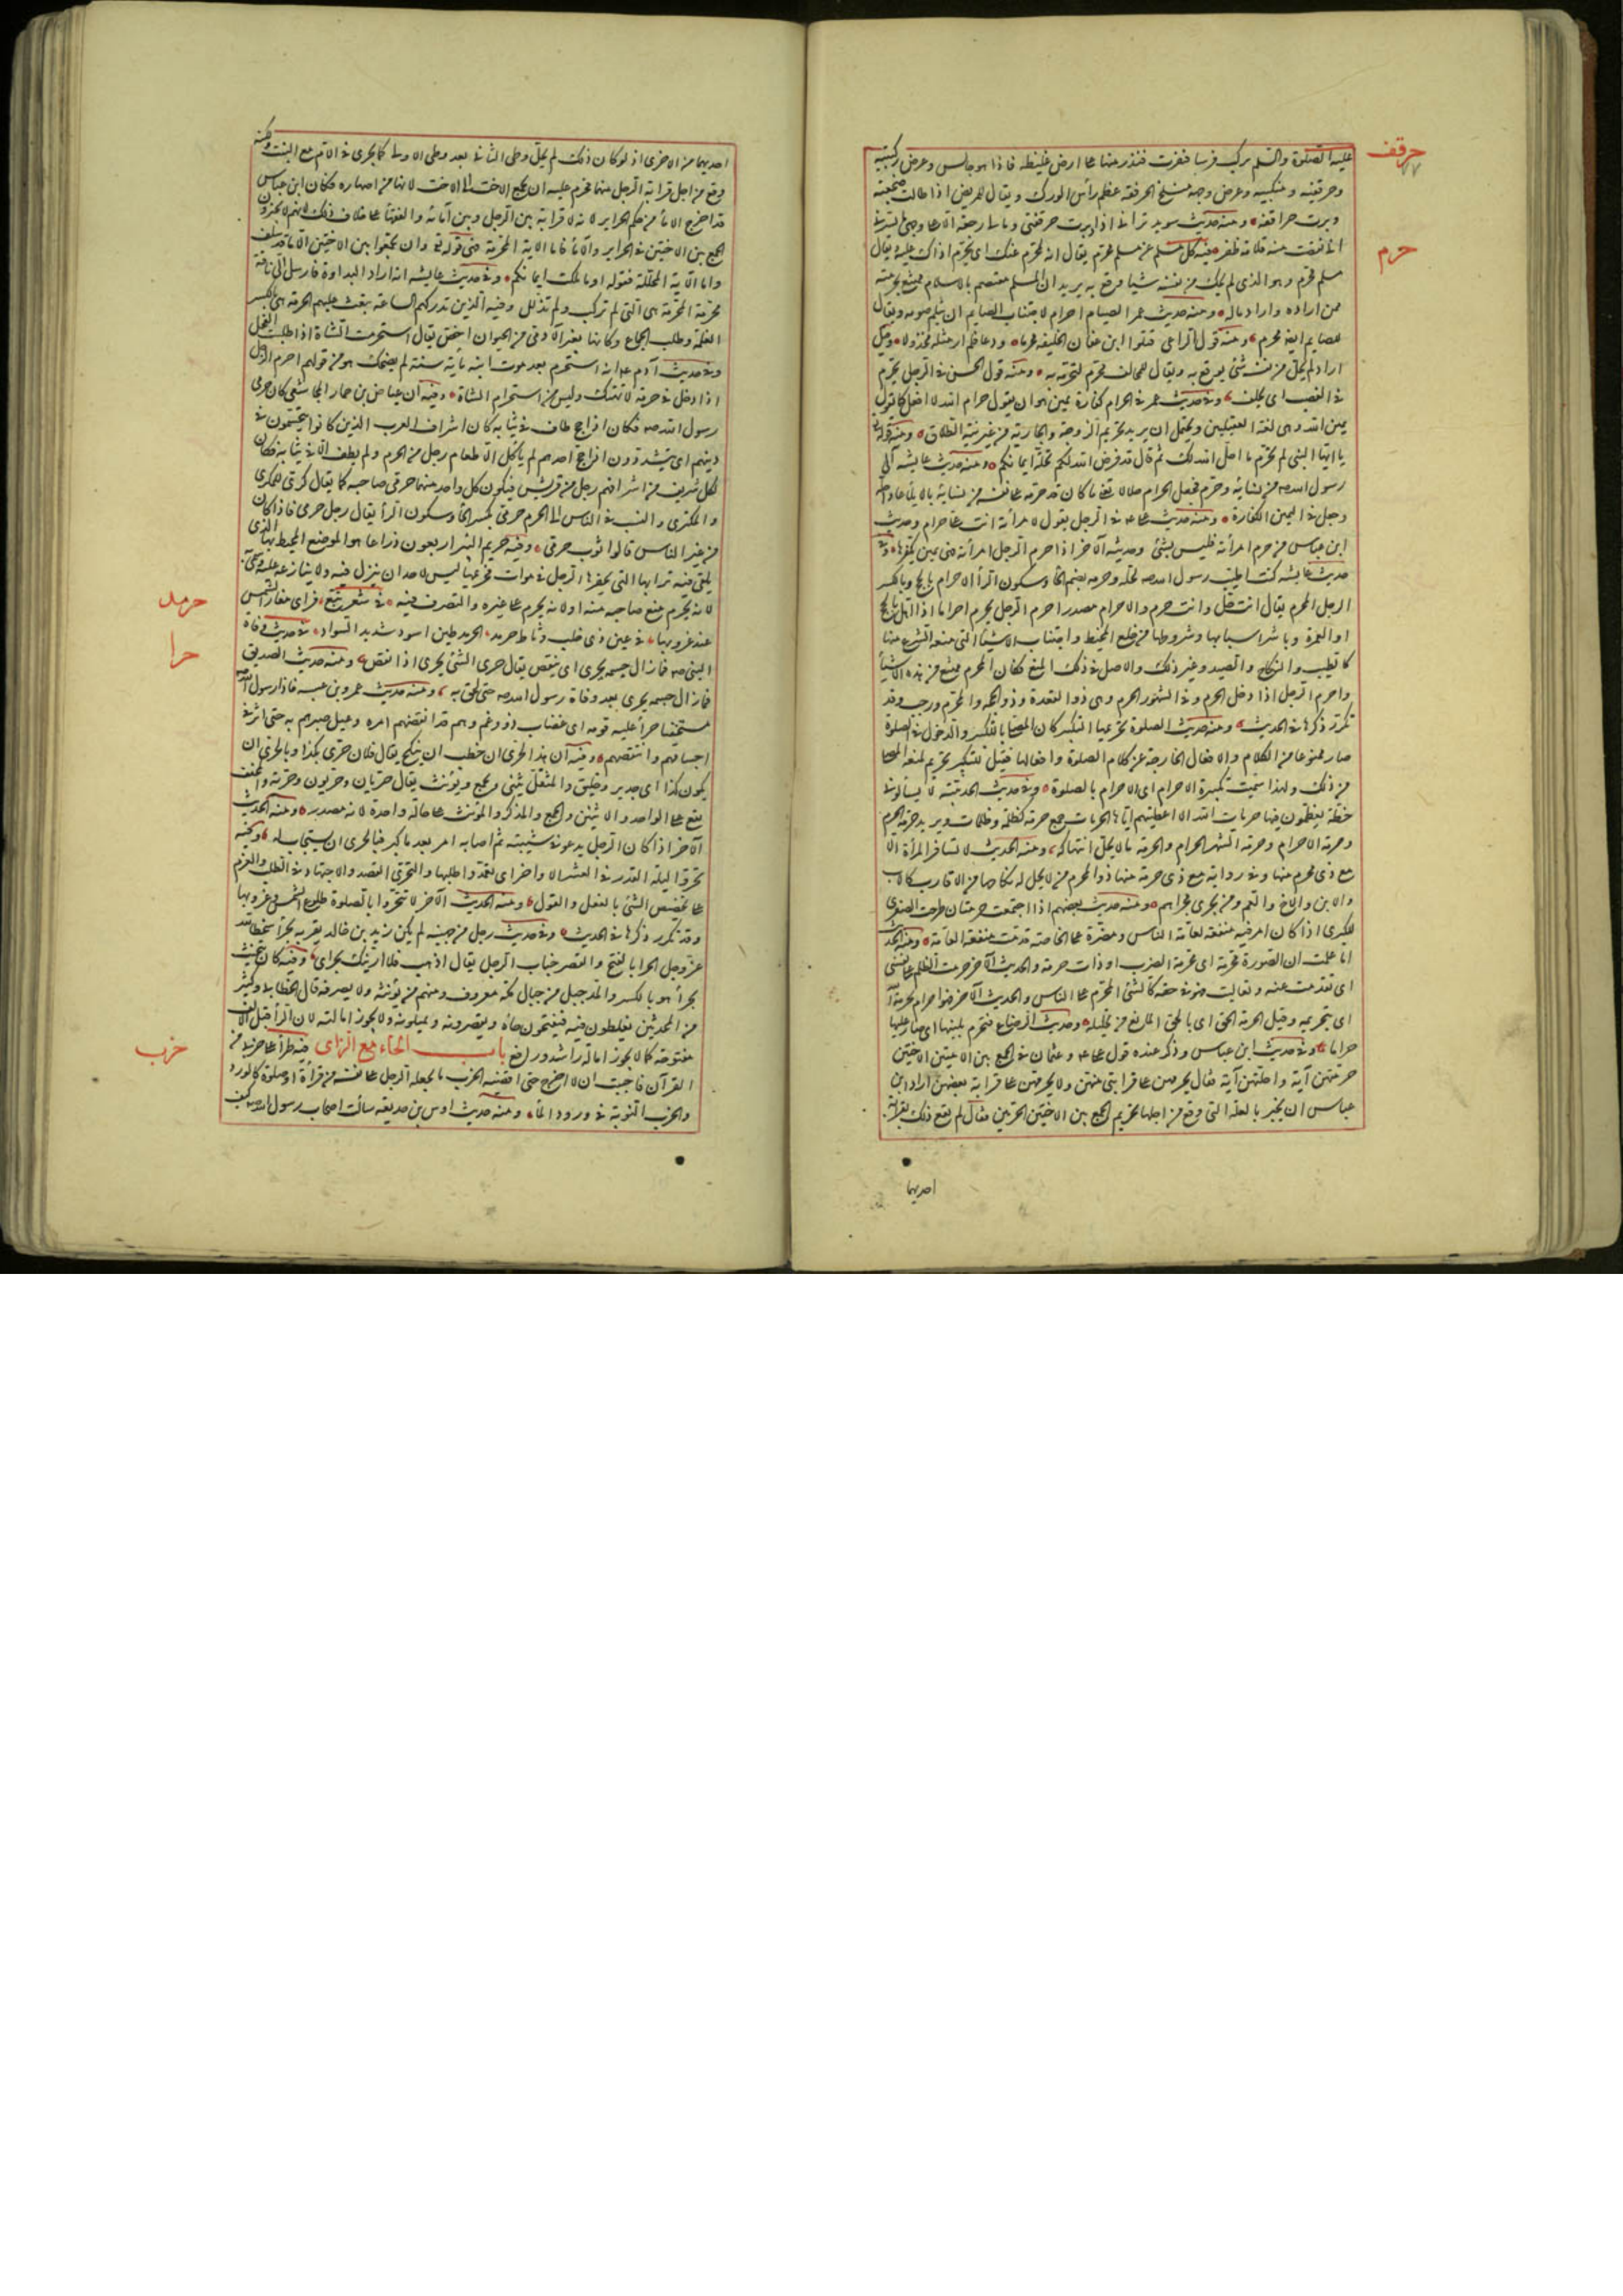 حرقف
عليه الصلوة والسلم ركب فرسا فنفرت فندر منها على ارض غليظة فاذا هو جالس وعرض ركبتيه
وحرقفتيه ومنكبيه وعرض وجهه منسلخ الحرقفة عظم رأس الورك ويقال للمريض اذا طالت ضجعته
دبرت حراقفه ومنه حديث سويد ترانى اذا دبرت حرقفتى ومالى ضجعة الا على وجهى ما يسرنى
حرم
انى نقصت منه قلامة ظفر فيه كل مسلم عن مسلم محرم يقال انه لمحرم عنك اى يحرم اذاك عليه ويقال
مسلم محرم وهو الذى لم يحل من نفسه شيئا يوقع به يريد ان المسلم معتصم بالاسلام ممتنع بحرمته
ممن اراده واراد ماله ومنه حديث عمر الصيام احرام لاجتناب الصايم ما يثلم صومه ويقال
للصايم ايضا محرم ومنه قول الراعى قتلوا ابن عفان الخليفة محرما ودعا فلم ار مثله مخذولا وقيل
اراد لم يحل من نفسه شيئ يوقع به ويقال للحالف محرم لتحرمه به ومنه قول الحسن فى الرجل يحرم
فى الغضب اى يحلف وفى حديث عمر فى الحرام كفارة يمين هو ان يقول حرام الله لا افعل كما تقول
يمين الله وهى لغة العقيليين ويحتمل ان يريد تحريم الزوجة والجارية من غير نية الطلاق ومنه قوله تعالى
يا ايها النبى لم تحرم ما احل الله لك ثم قال قد فرض الله لكم تحلة ايمانكم ومنه حديث عايشه آلى
رسول الله صم من نسائه وحرم فجعل الحرام حلالا تعنى ما كان قد حرمه على نفسه من نسائه بالايلاء عاد احله
وجعل فى اليمين الكفارة ومنه حديث على فى الرجل يقول لامرأته انت على حرام وحديث
ابن عباس من حرم امرأته فليس بشئ وحديثه الآخر اذا حرم الرجل امرأته فهى يمين يكفرها وفى
حديث عايشه كنت اطيب رسول الله صم لحله وحرمه بضم الحاء وسكون الراء الاحرام بالحج وبالكسر
الرجل المحرم يقال انت حل وانت حرم والاحرام مصدر احرم الرجل يحرم احراما اذا اهل بالحج
او العمرة وباشر اسبابها وشروطها من خلع المخيط واجتناب الاشياء التى منعه الشرع منها
كالطيب والنكاح والصيد وغير ذلك والاصل فى ذلك المنع فكان المحرم ممتنع من هذه الاشياء
واحرم الرجل اذا دخل الحرم وفى الشهور الحرم وهى ذو القعدة وذو الحجة والمحرم ورجب وقد
تكرر ذكرها فى الحديث ومنه حديث الصلوة تحريمها التكبير كان المصلى بالتكبير والدخول فى الصلوة
صار ممنوعا من الكلام والافعال الخارجة عن كلام الصلوة وافعالها فقيل للتكبير تحريم لمنعه المصلى
من ذلك ولهذا سميت تكبيرة الاحرام اى الاحرام بالصلوة وفى حديث الحديبية لا يسألونى
خطة يعظمون فيها حرمات الله الا اعطيتهم اياها الحرمات جمع حرمة كظلمة وظلمات ويريد حرمة الحرم
وحرمة الاحرام وحرمة الشهر الحرام والحرمة ما لا يحل انتهاكه ومنه الحديث لا تسافر المرأة الا
مع ذى محرم منها وفى رواية مع ذى حرمة منها ذو المحرم من لا يحل له نكاحها من الاقارب كالاب
والابن والاخ والعم ومن يجرى مجراهم ومنه حديث بعضهم اذا اجتمعت حرمتان طرحت الصغرى
للكبرى اذا كان امر فيه منفعة لعامة الناس ومضرة على الخاصة قدمت منفعة العامة ومنه الحديث
اما علمت ان الصورة محرمة اى محرمة الضرب او ذات حرمة والحديث الآخر حرمت الظلم على نفسى
اى تقدست عنه وتعاليت فهو فى حقه كالشئ المحرم على الناس والحديث الآخر فهو حرام بحرمة الله
اى بتحريمه وقيل الحرمة الحق اى بالحق المانع من تحليله وحديث الرضاع فتحرم بلبنها اى صار عليها
حراما وفى حديث ابن عباس وذكر عنده قول على وعثمان فى الجمع بين الامتين الاختين
حرمتهن آية واحلتهن آية فقال يحرمهن على قرابتى منهن ولا يحرمهن على قرابة بعضهن اراد ابن
عباس ان يخبر بالعلة التى وقع من اجلها تحريم الجمع بين الاختين الحرتين فقال لم يقع ذلك بقرابة
احديهما
احديهما من الاخرى اذ لو كان ذلك لم يحل وطى الثانية بعد وطى الاولى كما يجرى فى الام مع البنت ولكنه
وقع من اجل قرابة الرجل منهما فحرم عليه ان يجمع الاخت الى الاخت لانها من اصهاره فكان ابن عباس
قد اخرج الاماء من حكم الحراير لانه لا قرابة بين الرجل وبين امائه والفقهاء على خلاف ذلك لانهم لا يجيزون
الجمع بين الاختين فى الحراير والاماء فاما الآية المحرمة فهى قوله تعالى وان تجمعوا بين الاختين الا ما قد سلف
واما الآية المحلة فقوله او ما ملكت ايمانكم وفى حديث عايشه انه اراد البداوة فارسل الى ناقة
محرمة المحرمة هى التى لم تركب ولم تذلل وفيه الذين تدركهم الساعة تبعث عليهم الحرمة هى بالكسر
الغلمة وطلب الجماع وكانها بغير الآدمى من الحيوان اخص يقال استحرمت الشاة اذا طلبت الفحل
وفى حديث آدم عم انه استحرم بعد موت ابنه مأية سنة لم يضحك هو من قولهم احرم الرجل
اذا دخل فى حرمة لا تهتك وليس من استحرام الشاة وفيه ان عياض بن حمار المجاشعى كان حرمى
رسول الله صم فكان اذا حج طاف فى ثيابه كان اشراف العرب الذين كانوا يتحمسون فى
دينهم اى يتشددون اذا حج احدهم لم يأكل الا طعام رجل من الحرم ولم يطف الا فى ثيابه فكان
لكل شريف من اشرافهم رجل من قريش فيكون كل واحد منهما حرمى صاحبه كما يقال كرى للمكرى
والمكترى والنسب فى الناس الى الحرم حرمى بكسر الحاء وسكون الراء يقال رجل حرمى فاذا كان
من غير الناس قالوا ثوب حرمى وفيه حريم البئر اربعون ذراعا هو الموضع المحيط بها الذى
يلقى فيه ترابها اى التى يحفرها الرجل فى موات فحريمها ليس لاحد ان ينزل فيه ولا ينازعه عليه وسمى به
حرمد
لانه يحرم منع صاحبه منه او لانه يحرم على غيره والتصرف فيه فى شعر تبع فرأى مغار الشمس
عند غروبها فى عين ذى خلب وثاط حرمد الحرمد طين اسود شديد السواد
حرا
فى حديث وفاة
النبى صم فما زال جسمه يحرى اى ينقص يقال حرى الشئ يحرى اذا نقص ومنه حديث الصديق
فما زال جسمه يحرى بعد وفاة رسول الله صم حتى لحق به ومنه حديث عمرو بن عبسه فاذا رسول الله صم
مستخفيا حراء عليه قومه اى غضاب ذوو غم وهم قد انتقصهم امره وعيل صبرهم به حتى اثر فى
اجسامهم وانتقصهم وفيه ان هذا لحرى ان خطب ان ينكح يقال فلان حرى بكذا وبالحرى ان
يكون كذا اى جدير وخليق والمثقل يثنى ويجمع ويؤنث يقال حريان وحريون وحرية والمخفف
يقع على الواحد والاثنين والجمع والمذكر والمؤنث على حالة واحدة لانه مصدر ومنه الحديث
الآخر اذا كان الرجل يدعو فى شبيبته ثم اصابه امر بعد ما كبر فبالحرى ان يستجاب له وفيه
تحروا ليلة القدر فى العشر الاواخر اى تعمدوا طلبها والتحرى القصد والاجتهاد فى الطلب والعزم
على تخصيص الشئ بالفعل والقول ومنه الحديث الآخر لا تتحروا بالصلوة طلوع الشمس وغروبها
وقد تكرر ذكرها فى الحديث وفى حديث رجل من جهينه لم يكن زيد بن خالد يقربه بحراه سخطا لله
عز وجل الحرا بالفتح والقصر جناب الرجل يقال اذهب فلا ارينك بحراى وفيه كان يتحنث
بحراء هو بالكسر والمد جبل من جبال مكة معروف ومنهم من يؤنثه ولا يصرفه قال الخطابى وكثير
من المحدثين يغلطون فيه فيفتحون حاءه ويقصرونه ويميلونه ولا يجوز امالته لان الراء قبل الالف
حزب
مفتوحة كما لا يجوز امالة راشد ورافع باب الحاء مع الزاى فيه طرأ على حزبى من
القرآن فاحببت ان لا اخرج حتى اقضيه الحزب ما يجعله الرجل على نفسه من قرأة او صلوة كالورد
والحزب النوبة فى ورود الماء ومنه حديث اوس بن حذيفه سألت اصحاب رسول الله صم كيف